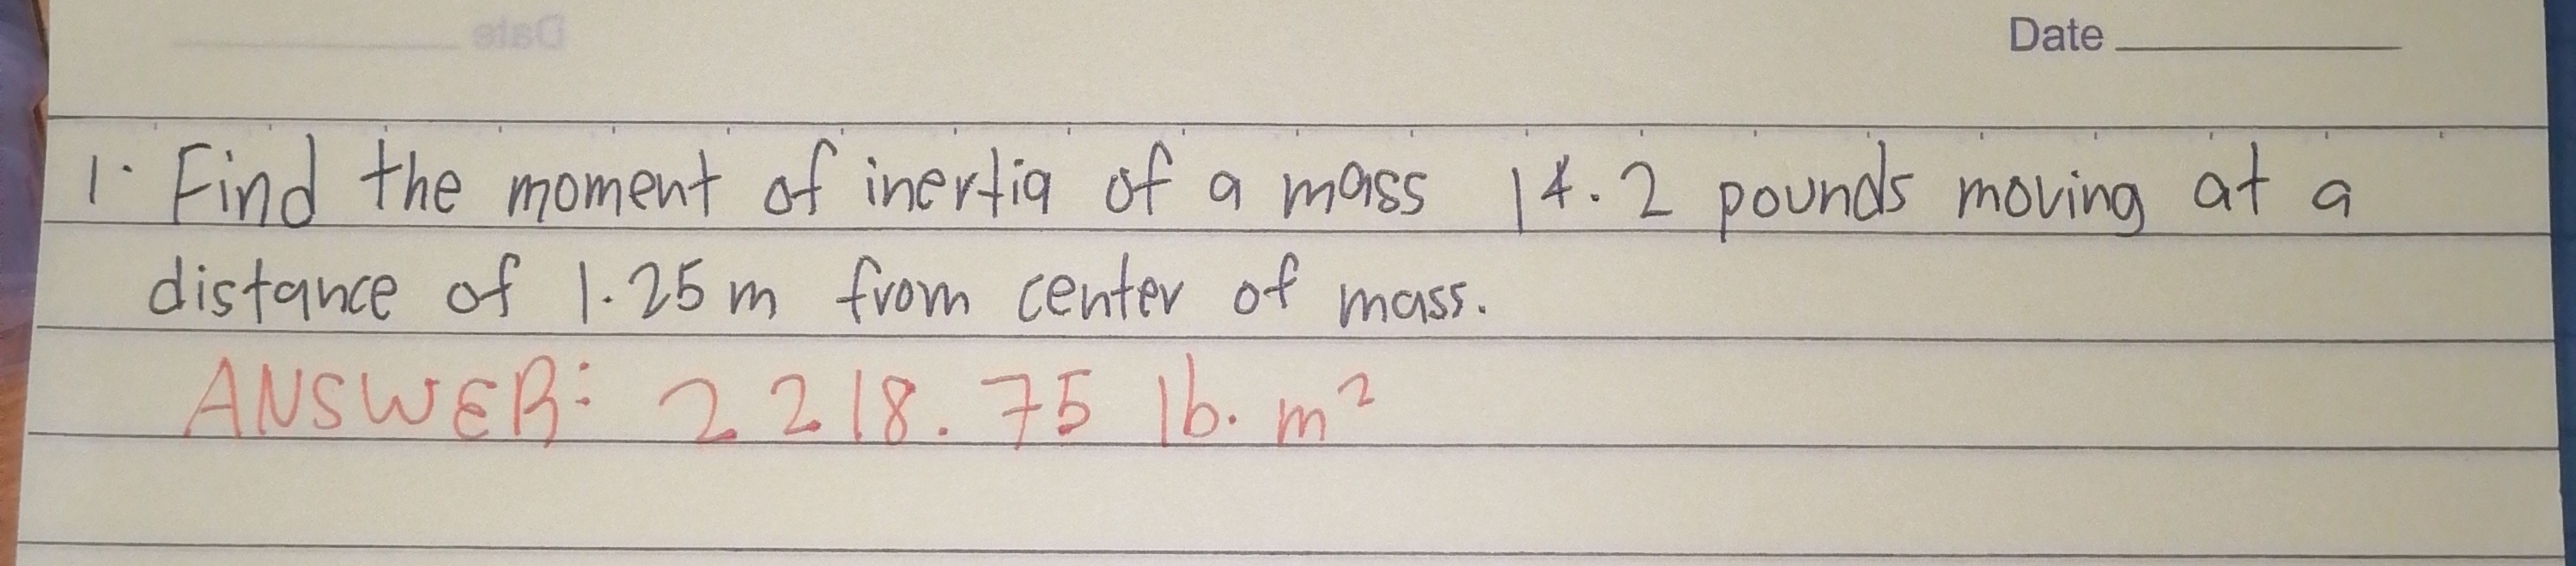 Date
Date
1. Find the moment of inertia of a mass 14.2 pounds moving at a
distance of 1.25 m from center of mass.
ANSWER: 2218.75 lb. m²